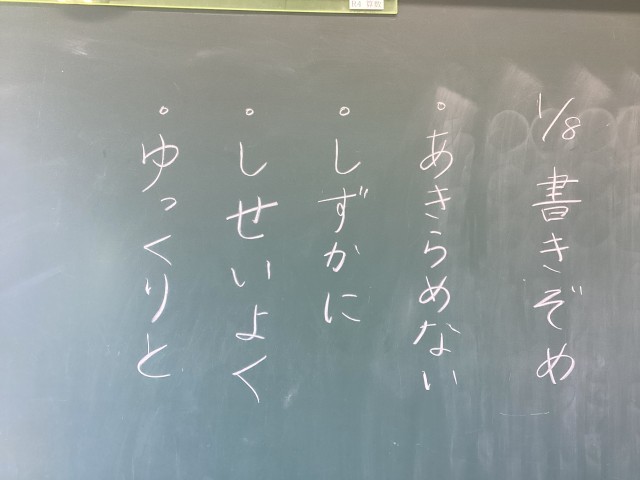 1/8 書きぞめ
。あきらめない
。しずかに
。しせいよく
。ゆっくりと